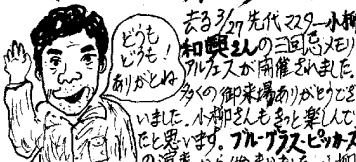 どうも
どうも！
ありがとね
去る3/27先代マスター小柳
さんの三回忌メモリ
アルフェスが開催されました
多くの御来場ありがとうござ
いました。小柳さんもきっと楽しんで
たと思います。ブルーグラス・ピッキ